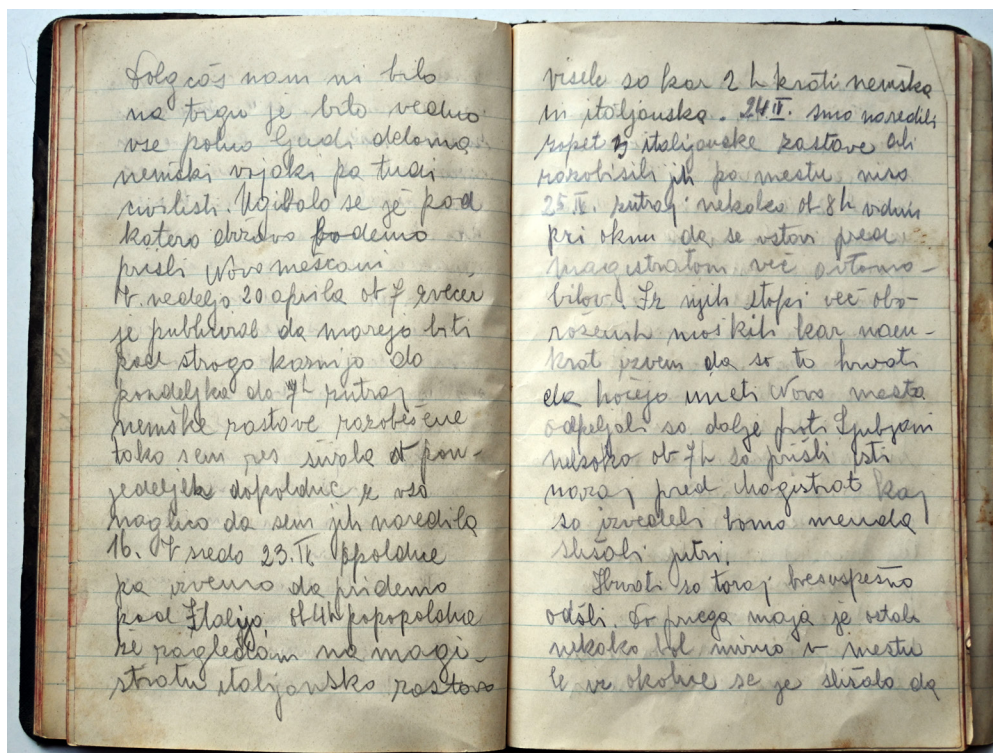 Dolg cás nam ni bilo
na trgu je bilo vedno
vse polno ljudi deloma
nemški vojaki pa tudi
civilisti. Ugibalo se je pod
katero državo bodemo
prišli Novo meščani
V. nedeljo 20 aprila ob 7 zvečer
je publiciral da morejo biti
pod strogo kaznijo do
pondeljka do 7h zutraj
nemške zastave razobešene
tako sem res šivala pon-
jedeljek dopoldne z vso
naglico da sem jih naredila
16. V sredo 23.IV opoldne
pa izvemo da pridemo
pod Italijo, ob 4h popopoldne
že zagledam na magi-
stratu italjansko zastavo
visele so kar 2 h krati nemška
in italjanska. 24 IV. smo naredili
zopet italijanske zastave ali
razobisili jih po mestu niso
25.IV. zutraj nekako ob 8h vidim
pri oknu da se vstavi pred
magistratom več avtomo-
bilov. Iz njih stopi več obo-
roženih moških kar naen-
krat izvem da so to hrvati
da hočejo imeti Novo mesto
odpeljali so dalje proti Ljubjani
nekako ob 7h so prišli isti
nazaj pred Magistrat kaj
so izvedeli bomo menda
slišali jutri.
Hrvati so toraj bresuspešno
odšli. Do prvega maja je ostalo
nekako bol mirno v mestu
le iz okolice se je slišalo da